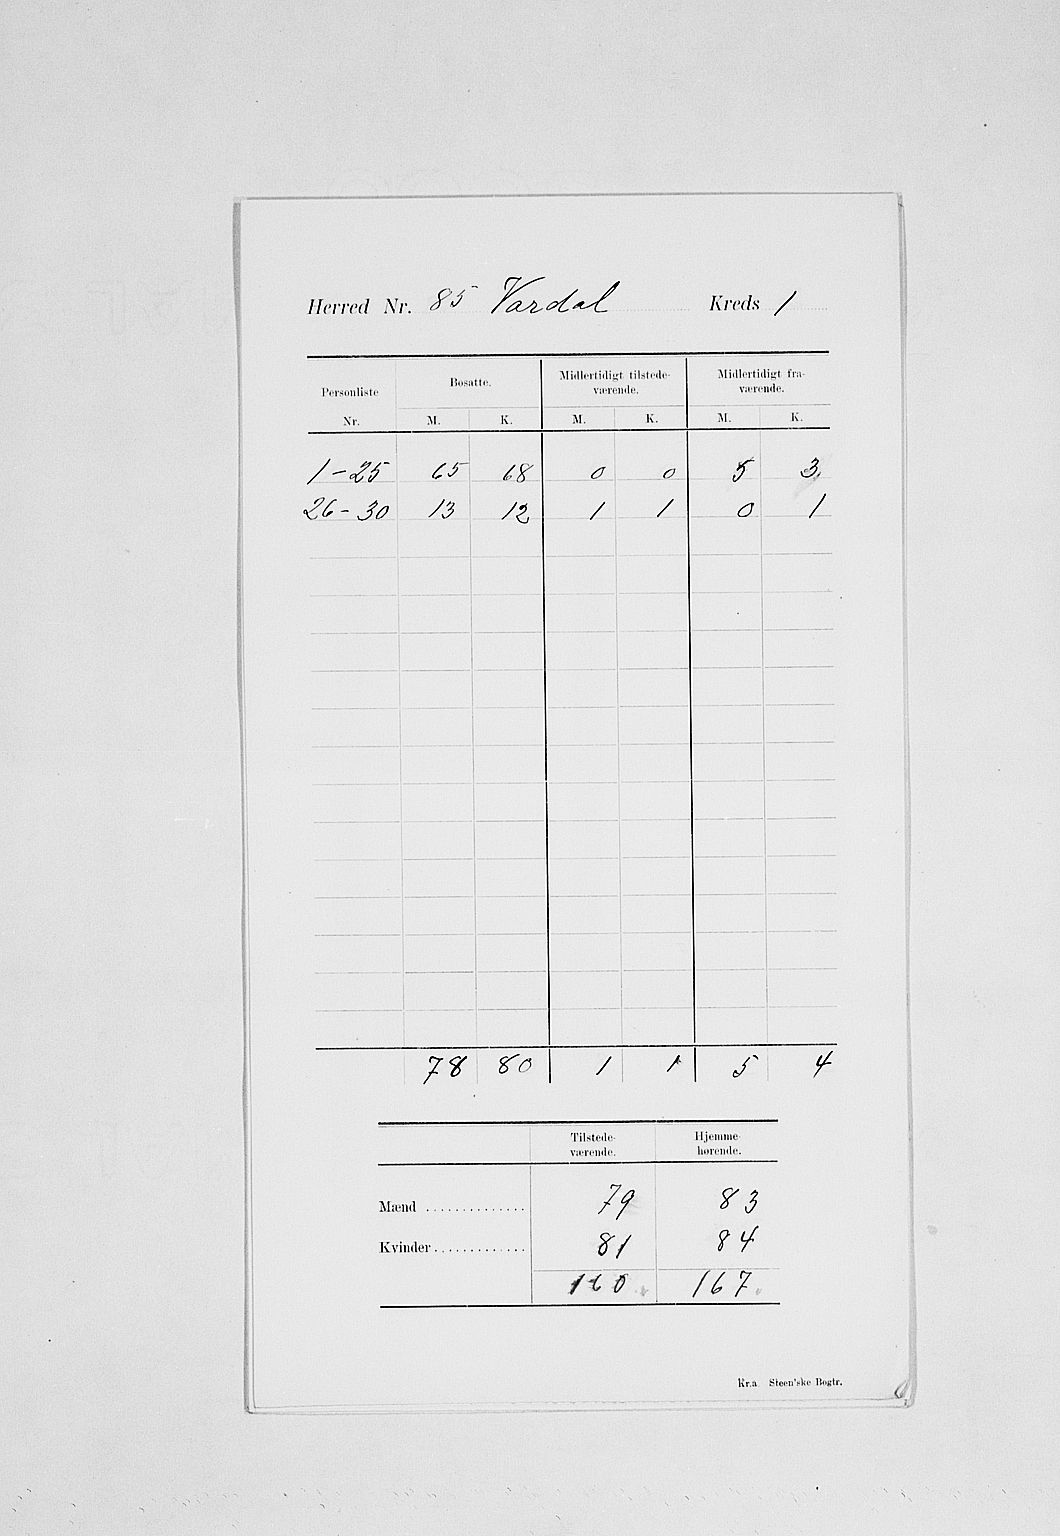 Herred Nr. 85 Vardal Kreds 1
Personliste Nr. Bosatte. Midlertidigt tilstede- Midlertidigt fra-
værende. værende.
M. K. M. K. M. K.
1-25 65 68 0 0 5 3
26-30 13 12 1 1 0 1
78 80 1 1 5 4
Tilstede- Hjemme-
værende. hørende.
Mænd .............. 79 83
Kvinder............. 81 84
160 167
Kr.a Steen'ske Bogtr.